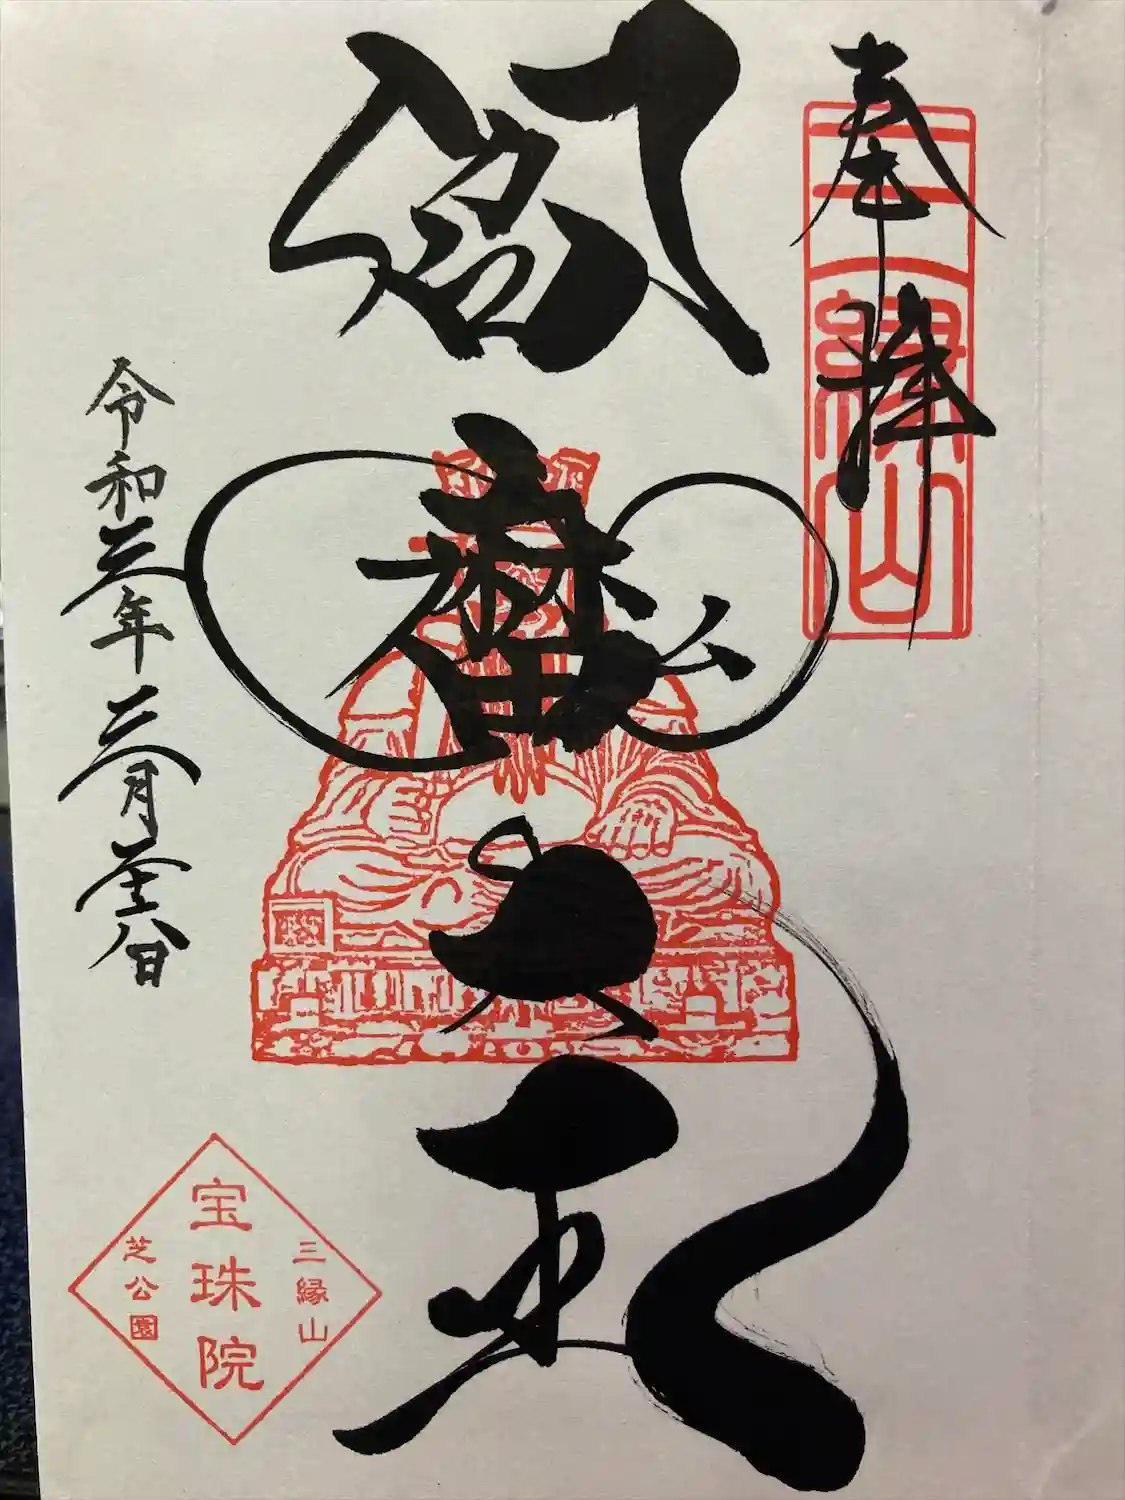 奉拝
三縁山
閻魔大王
令和三年三月廿八日
三縁山
宝珠院
芝公園